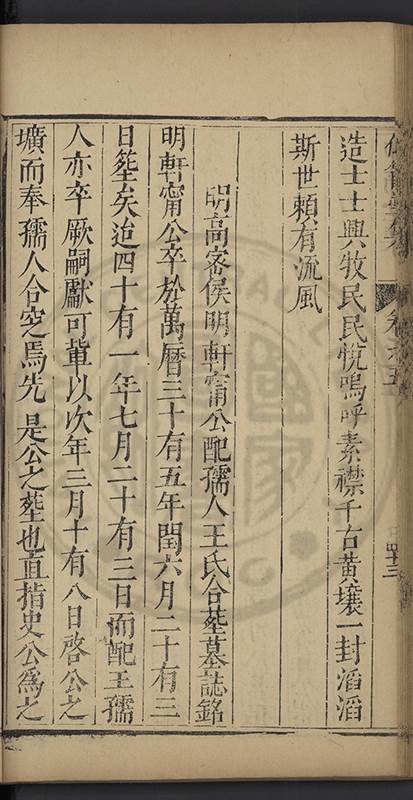 卷之五
四十三
造士士興牧民民悅嗚呼素襟千古黃壤一封滔滔
斯世賴有流風
明高密侯明軒甯公配孺人王氏合塟墓誌銘
明軒甯公卒於萬曆三十有五年閏六月二十有三
日塟矣迨四十有一年七月二十有三日而配王孺
人亦卒厥嗣獻可軰以次年三月十有八日啓公之
壙而奉孺人合窆焉先是公之塟也直指史公爲之